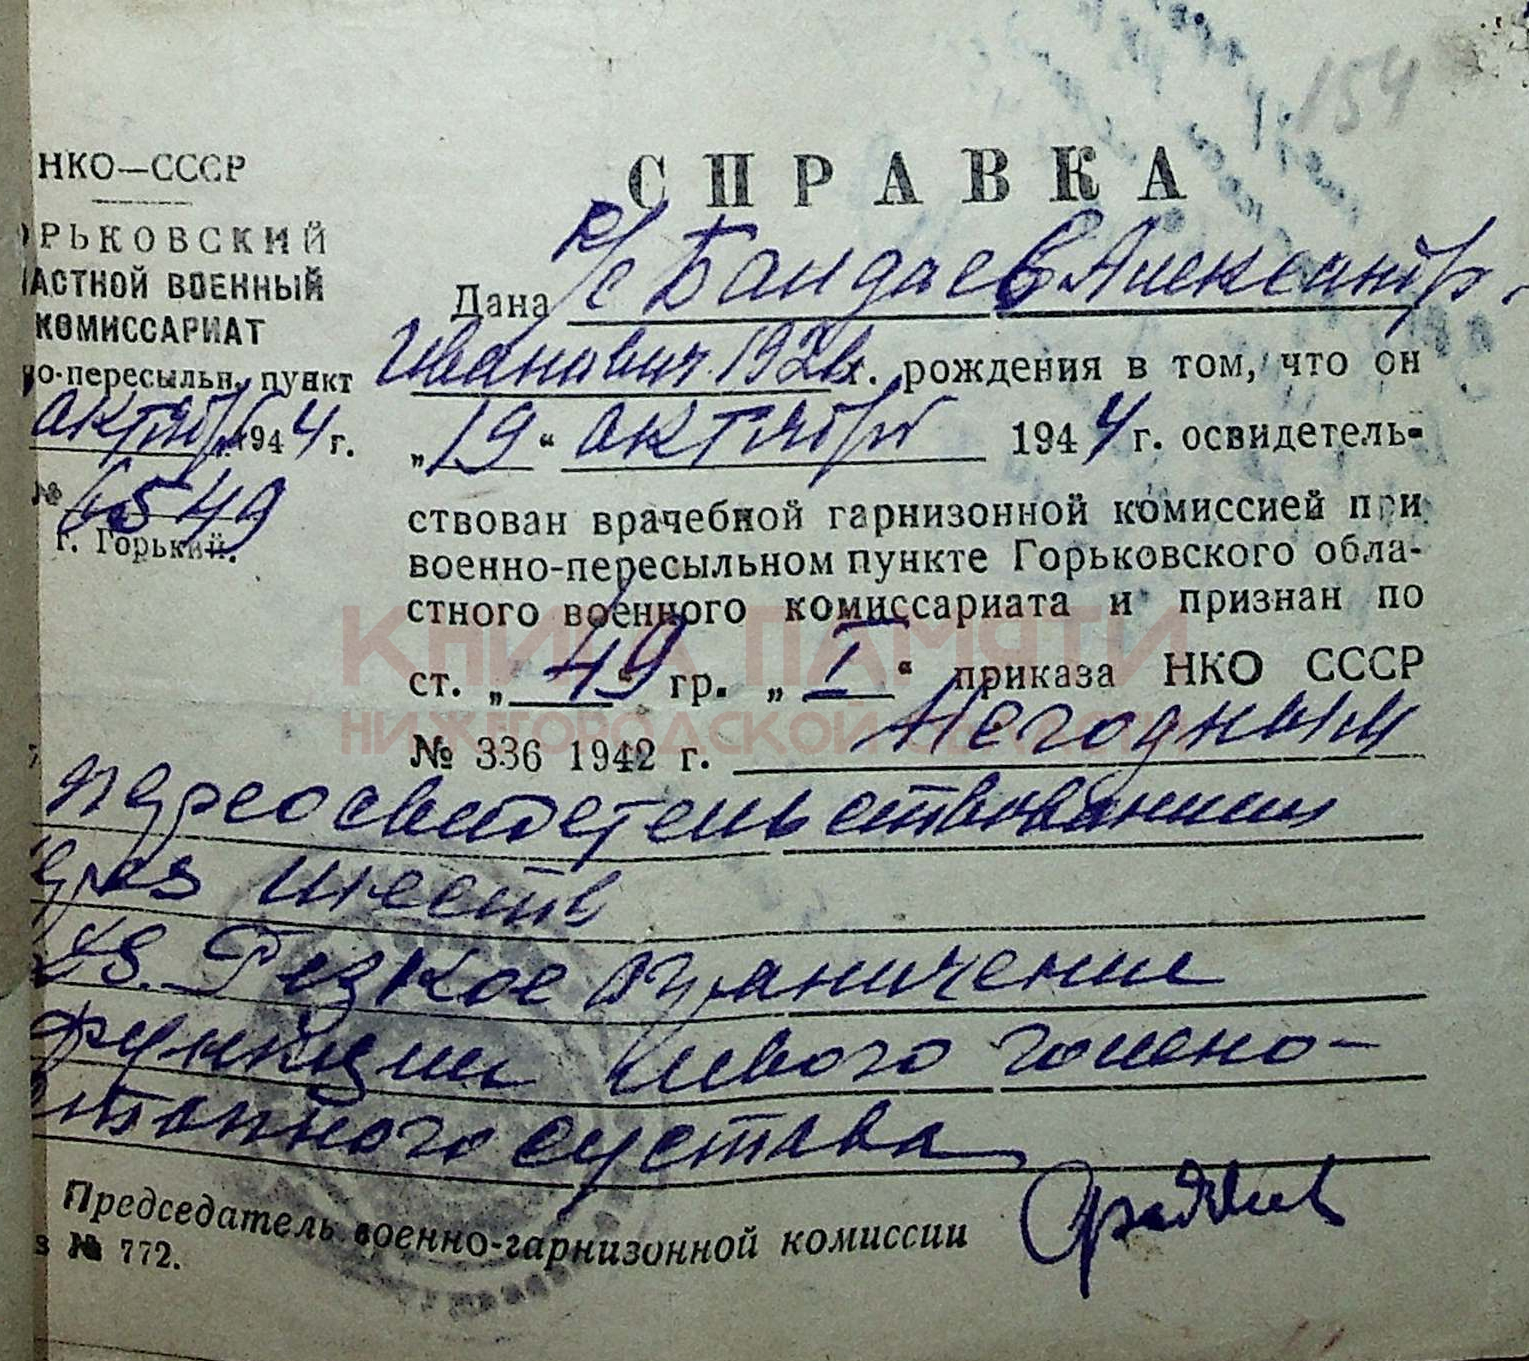 154
НКО—СССР
ОРЬКОВСКИЙ
ЛАСТНОЙ ВОЕННЫЙ
КОМИССАРИАТ
но-пересыльн. пункт
октября 1944 г.
№ 6549
г. Горький.
СПРАВКА
Дана к/с Бандаев Александр
Иванович 192 г. рождения в том, что он
„19“ октября 1944 г. освидетель-
ствован врачебной гарнизонной комиссией при
военно-пересыльном пункте Горьковского обла-
стного военного комиссариата и признан по
ст. „49“ гр. „I“ приказа НКО СССР
№ 336 1942 г. Негодным
переосвидетельствованием
через шесть
Резкое ограничение
функции левого голено-
стопного сустава
Председатель военно-гарнизонной комиссии
з № 772.
КНИГА ПАМЯТИ
НИЖЕГОРОДСКОЙ ОБЛАСТИ